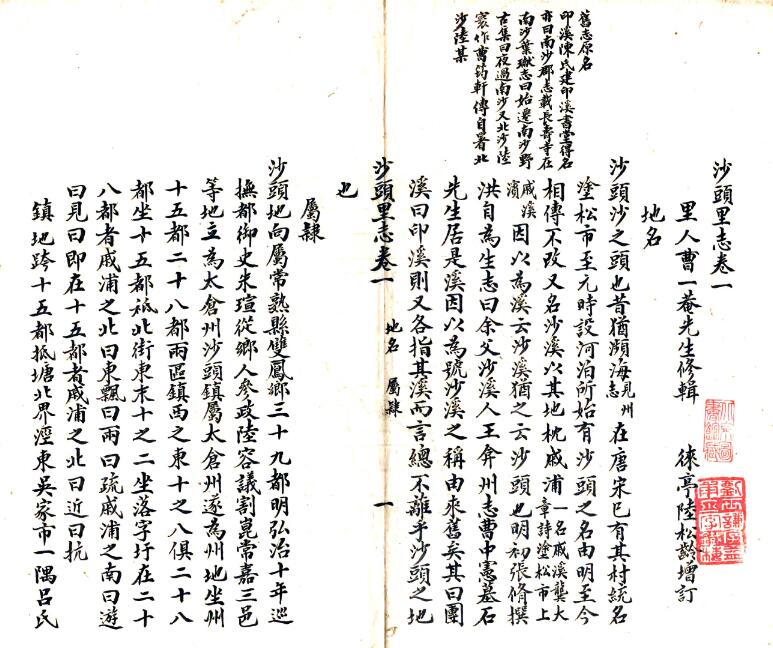 沙頭里志卷一
里人曹一菴先生修輯　徠亭陸松齡增訂
地名
沙頭沙之頭也昔猶瀕海見州志在唐宋已有其村統名
塗松市至元時設河泊所始有沙頭之名由明至今
相傳不改又名沙溪以其地枕戚浦一名戚溪龔大章詩塗松市上
戚溪濱因以為溪云沙溪猶之云沙頭也明初張脩撰
洪自為生志曰余父沙溪人王弇州志曹中憲墓石
先生居是溪因以為號沙溪之稱由來舊矣其曰團
溪曰印溪則又各指其溪而言總不離乎沙頭之地
舊志原名
印溪陳氏建印溪書堂得名
亦曰南沙郡志載長壽寺在
南沙葉璵志曰始遷南沙野
古集曰夜過南沙又北沙陸
寰作曹筠軒傳自署北
沙陸某
沙頭里志卷一　地名　屬隸　一
也
屬隸
沙頭地向屬常熟縣雙鳳鄉三十九都明弘治十年巡
撫都御史朱瑄從鄉人參政陸容議割崑常嘉三邑
等地立為太倉州沙頭鎮屬太倉州遂為州地坐州
十五都二十八都兩區鎮西之東十之八俱二十八
都坐十五都祗北街東末十之二坐落字圩在二十
八都者戚浦之北曰東飄曰雨曰疏戚浦之南曰遊
曰見曰即在十五都者戚浦之北曰近曰抗
鎮地跨十五都抵塘北界涇東吳家市一隅呂氏